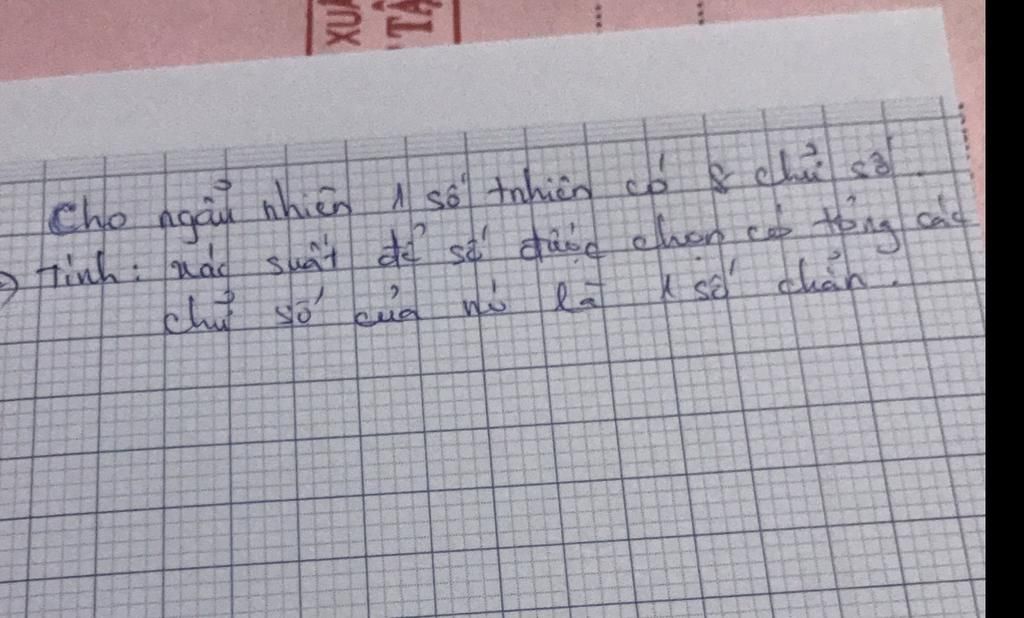 XUẤ
TẬ
Cho ngẫu nhiên 1 số tnhiên có 8 chữ số.
Tính: xác suất để số được chọn có tổng các
chữ số của nó là 1 số chẵn.